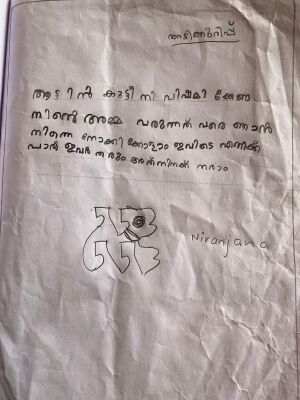 അടിക്കുറിപ്പ്
ആട്ടിൻ കുട്ടീ നീ വിഷമിക്കേണ്ട
നിന്റെ അമ്മ വരുന്നത് വരെ ഞാൻ
നിന്നെ നോക്കി കോളാം ഇവിടെ എനിക്ക്
പാൽ ഇവർ തരും അത് നിനക്ക് തരാം
Niranjana